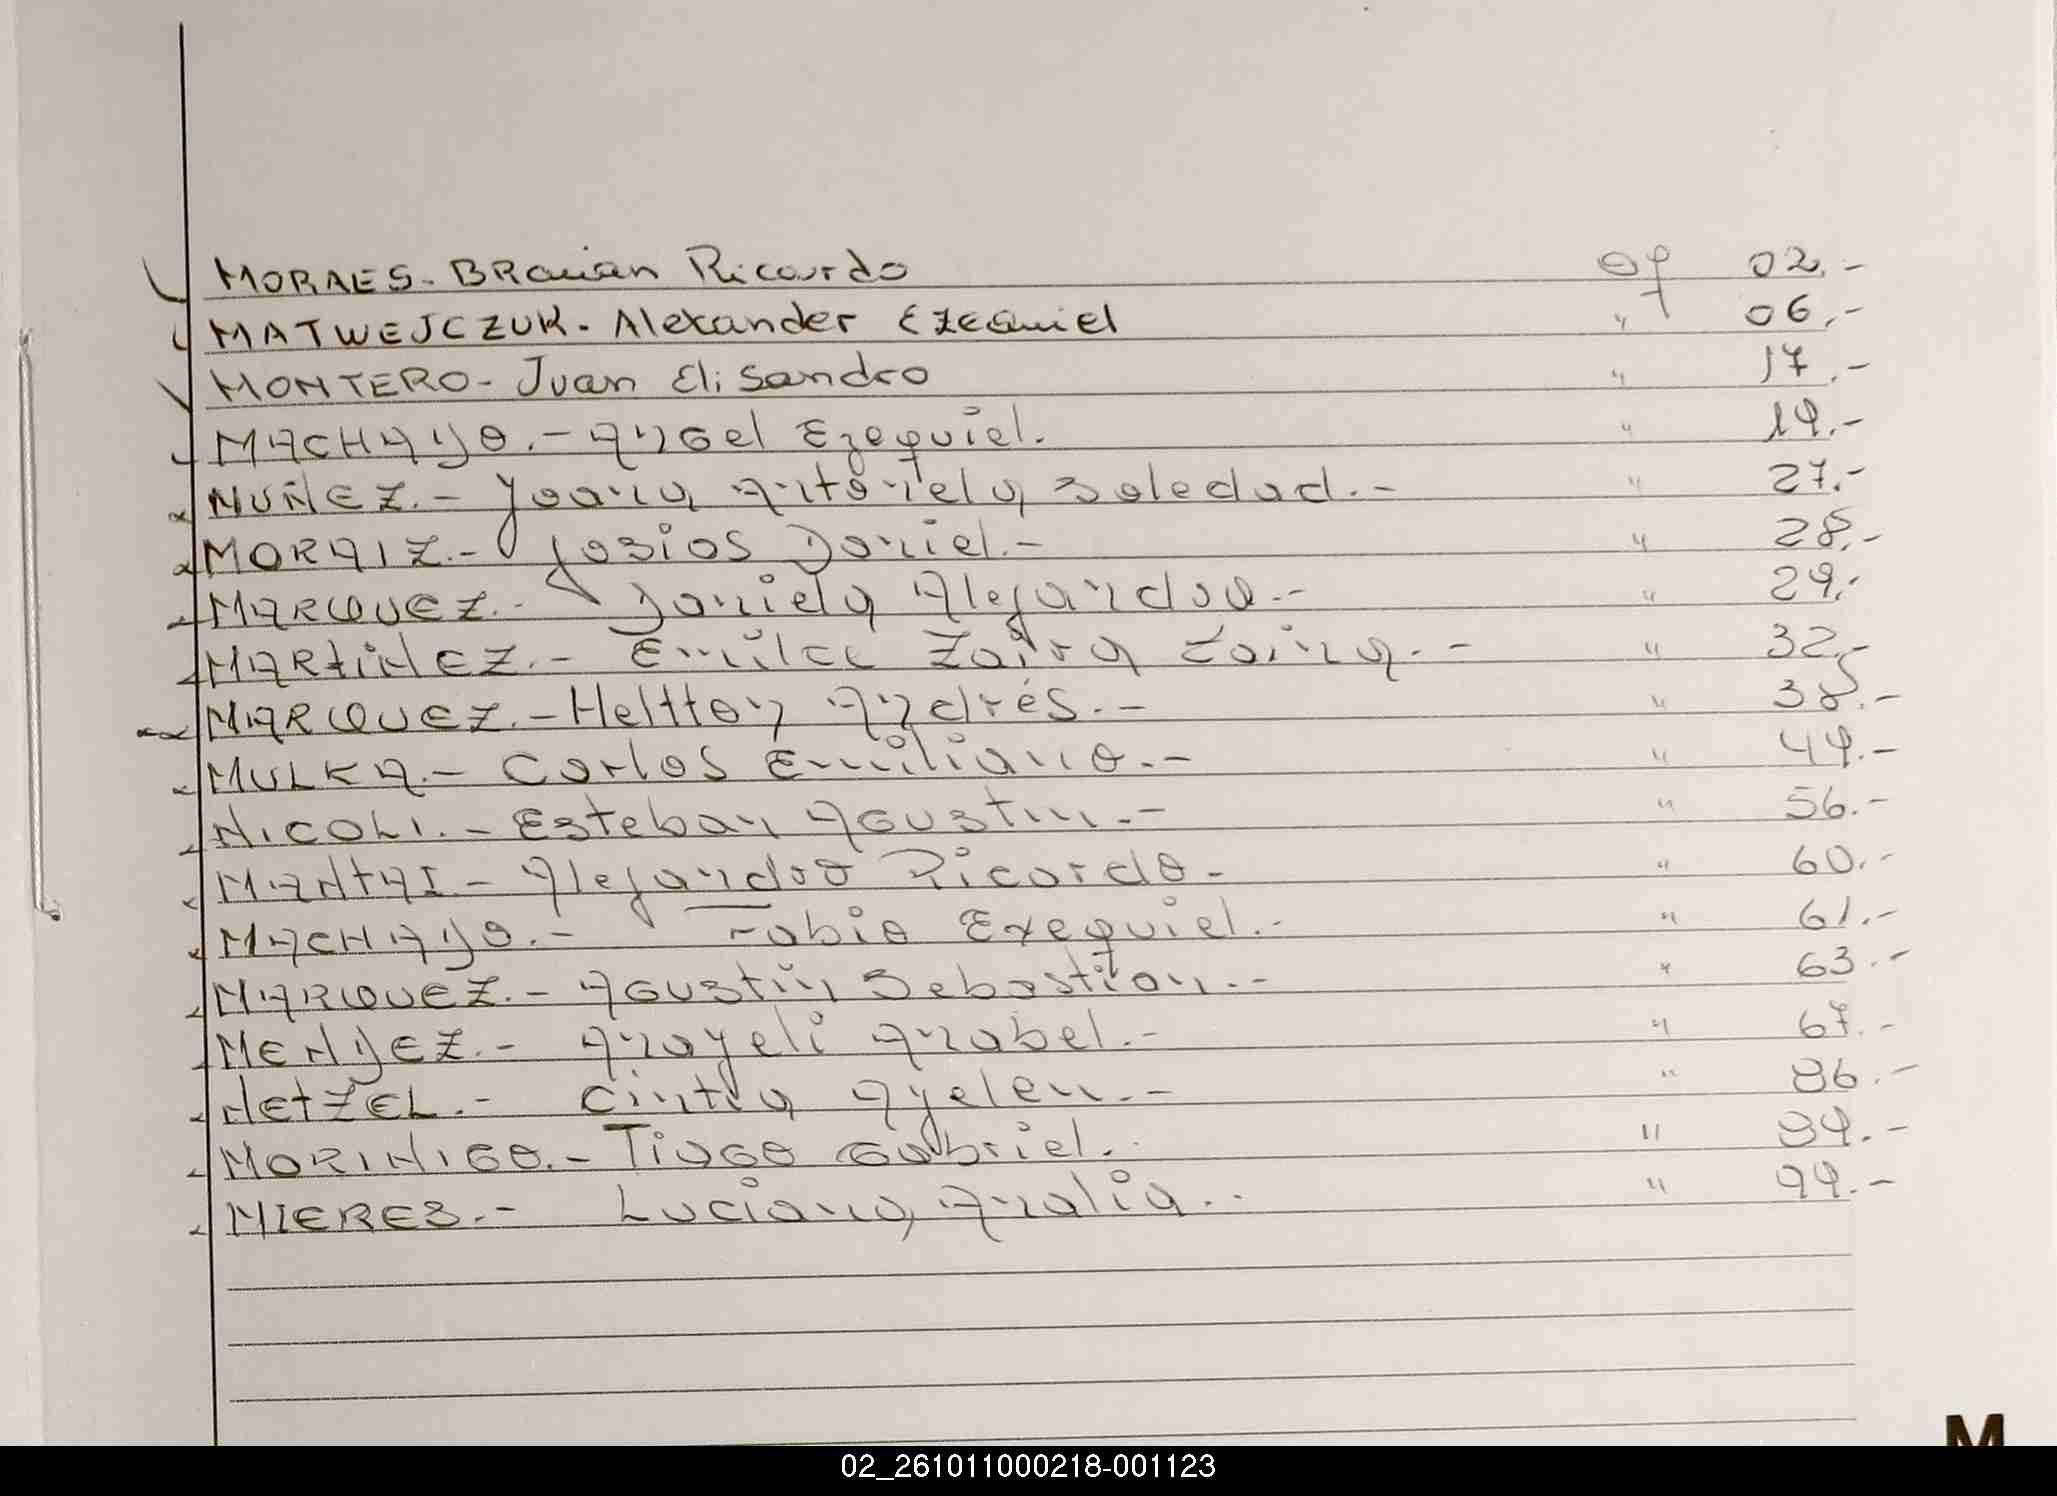 MORAES.- BRaian Ricardo 09 02.-
MATWEJCZUK.- Alexander Ezequiel " 06.-
MONTERO- Juan Elisandro " 17.-
MACHADO.- Angel Ezequiel. " 19.-
NUÑEZ.- Joana Antonela Soledad.- " 27.-
MORAIZ.- Josias Daniel.- " 28.-
MARQUEZ.- Daniela Alejandra.- " 29.-
MARtiNEZ.- Emilce Zaira Zaina.- " 32.-
MARQUEZ.- Heltton Andrés.- " 38.-
MULKA.- Carlos Emiliano.- " 49.-
NICOLI.- Esteban Agustin.- " 56.-
MANtAI.- Alejandro Ricardo- " 60.-
MACHADO.- Fabio Exequiel.- " 61.-
MARQUEZ.- Agustin Sebastian.- " 63.-
MENDEZ.- Anayeli Anabel.- " 67.-
NetZEL.- Cintia Ayelen.- " 86.-
MORINIGO.- Tiago Gabriel. " 89.-
MIERES.- Luciana, Analia.. " 99.-
M
02_261011000218-001123